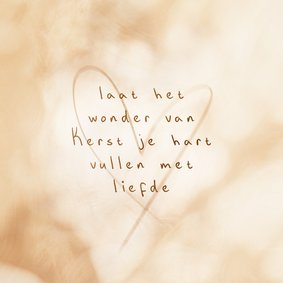 laat het
wonder van
Kerst je hart
vullen met
liefde